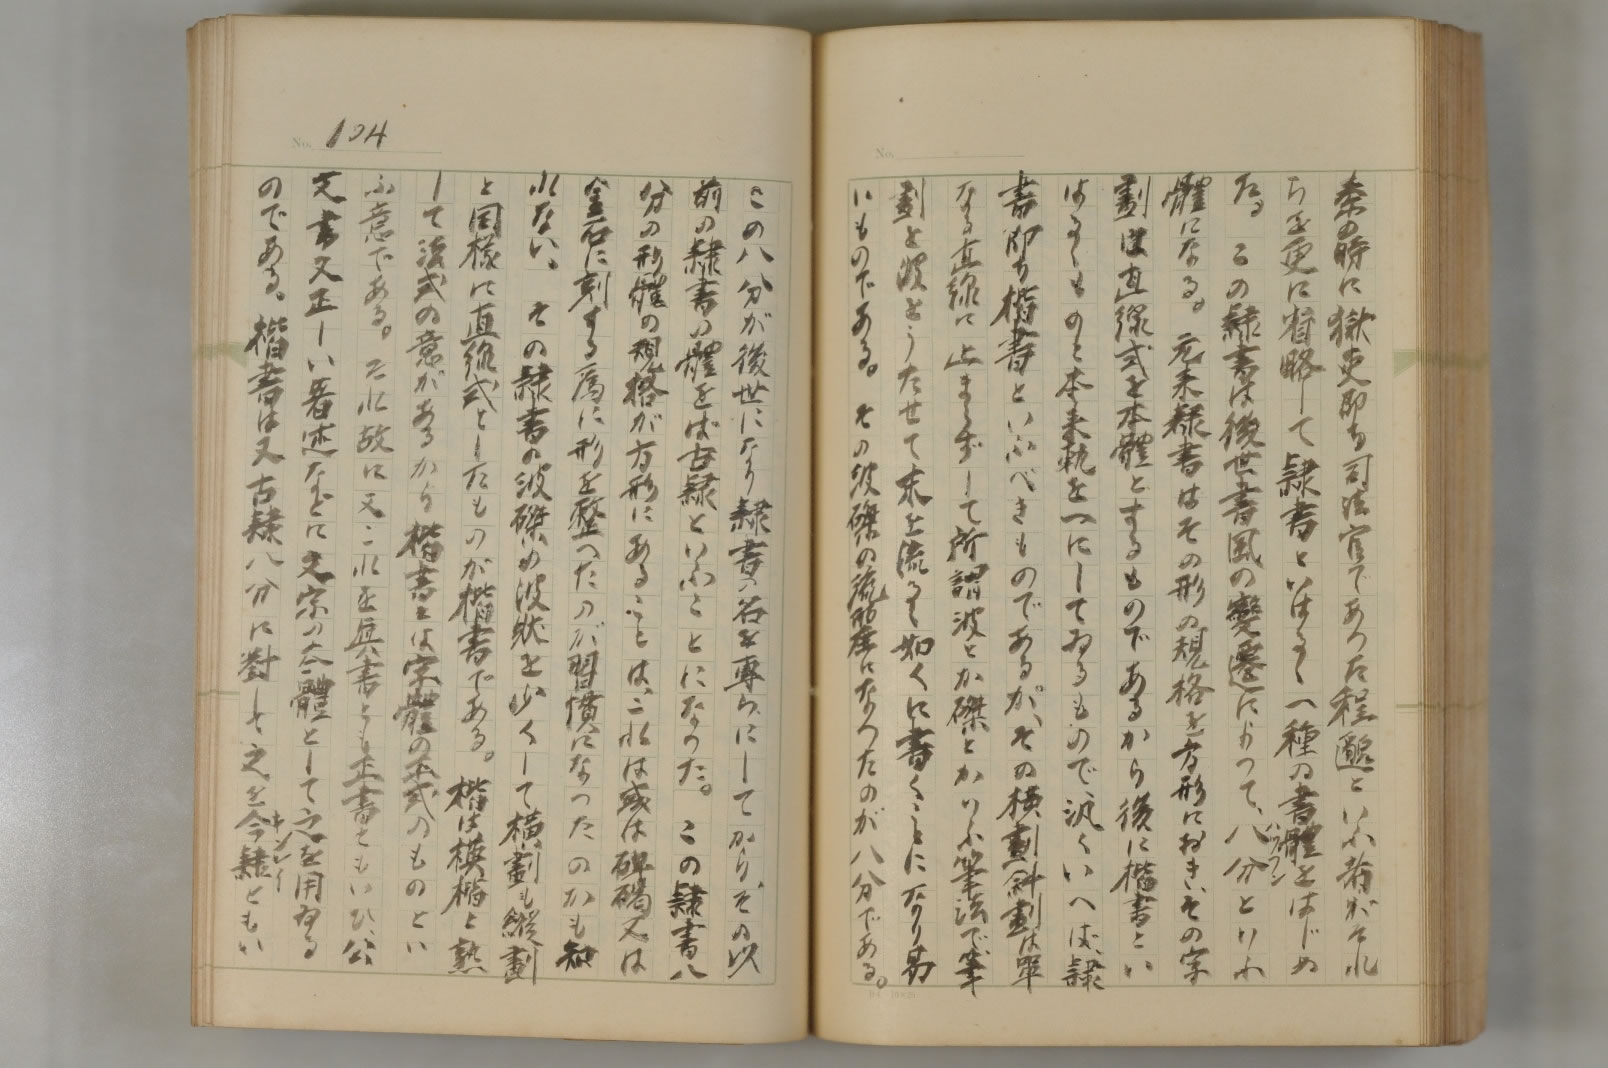 秦の時に獄吏即ち司法官であつた程邈といふ者がそれ
らを更に省略して隷書といはるゝ一種の書體をはじめ
た。この隷書は後世書風の變遷によつて、八分といふ
ハツプン
體になる。元来隷書はその形の規格を方形におき、その字
劃は直線式を本體とするものであるから後に楷書とい
はるゝものと本来軌を一にしてゐるもので、汎くいへば、隷
書即ち楷書といふべきものであるが、その横劃斜劃は單
なる直線に止まらずして所謂波とか磔とかいふ筆法で筆
劃を波をうたせて末を流るゝ如くに書くことになり易
いものである。その波磔の流麗になつたのが八分である。
No. 104
この八分が後世になり隷書の名を專らにしてから、その以
前の隷書の體をば古隷といふことになつた。この隷書八
分の形體の規格が方形にあることは、これは或は碑碣又は
金石に刻する爲に形を整へたのが習慣になつたのかも知
れない。その隷書の波磔の波状を少くして横劃も縱劃
と同様に直線式としたものが楷書である。楷は模楷と熟
して法式の意があるから楷書とは字體の正式のものとい
ふ意である。それ故に又これを眞書とも正書ともいひ、公
文書又正しい著述などに文字の本體として之を用ゐる
のである。楷書は又古隷八分に對して之を今隷ともい
キンレイ
No.